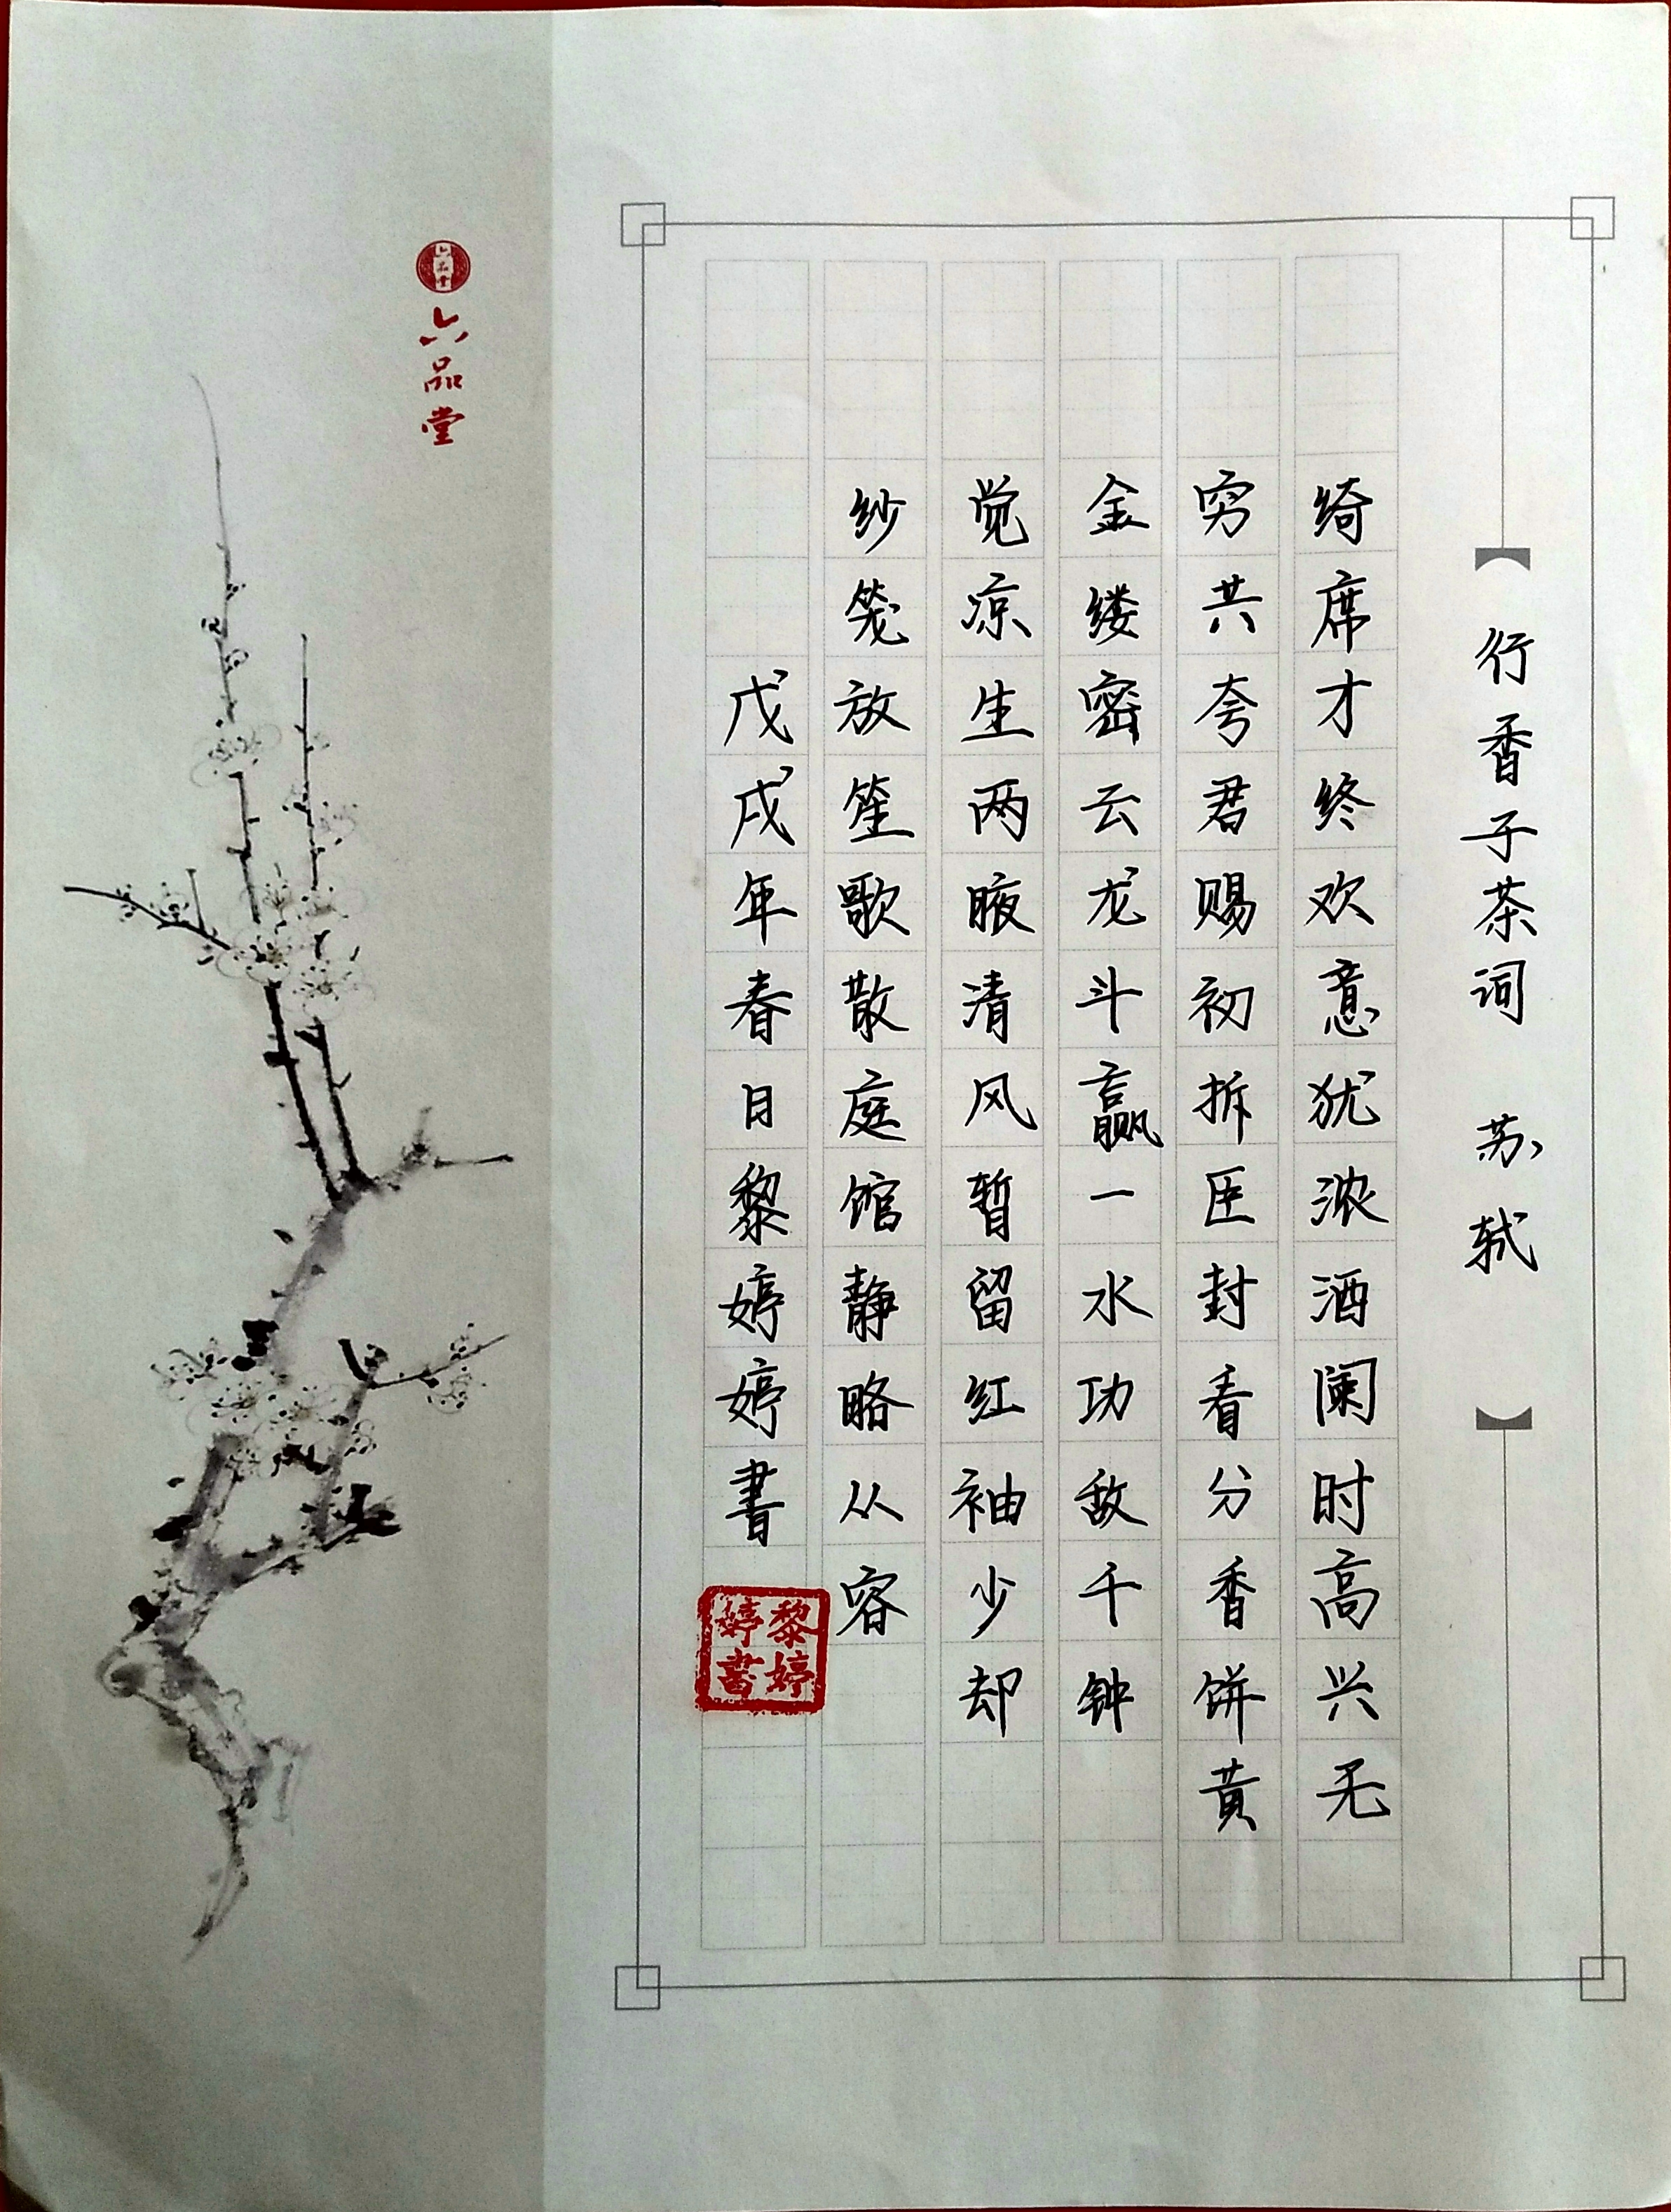 行香子茶词 苏轼
绮席才终欢意犹浓酒阑时高兴无
穷共夸君赐初拆臣封看分香饼黄
金缕密云龙斗赢一水功敌千钟
觉凉生两腋清风暂留红袖少却
纱笼放笙歌散庭馆静略从容
戊戌年春日黎婷婷書
黎婷婷書
六品堂
六品堂